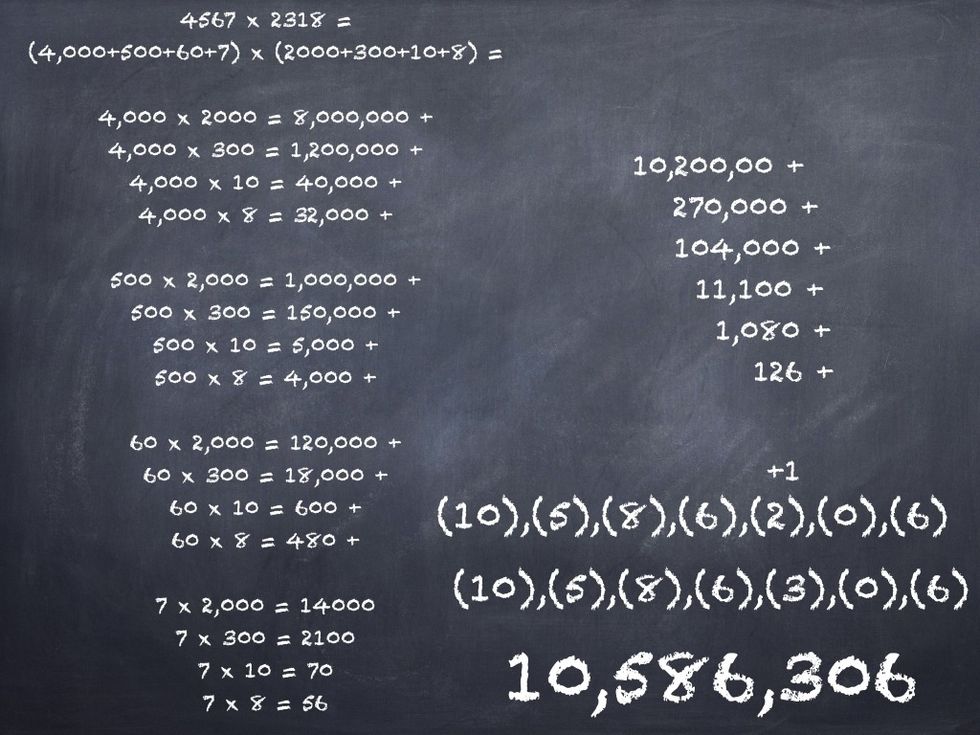 4567 x 2318 =
(4,000+500+60+7) x (2000+300+10+8) =
4,000 x 2000 = 8,000,000 +
4,000 x 300 = 1,200,000 +
4,000 x 10 = 40,000 +
4,000 x 8 = 32,000 +
500 x 2,000 = 1,000,000 +
500 x 300 = 150,000 +
500 x 10 = 5,000 +
500 x 8 = 4,000 +
60 x 2,000 = 120,000 +
60 x 300 = 18,000 +
60 x 10 = 600 +
60 x 8 = 480 +
7 x 2,000 = 14000
7 x 300 = 2100
7 x 10 = 70
7 x 8 = 56
10,200,00 +
270,000 +
104,000 +
11,100 +
1,080 +
126 +
+1
(10),(5),(8),(6),(2),(0),(6)
(10),(5),(8),(6),(3),(0),(6)
10,586,306